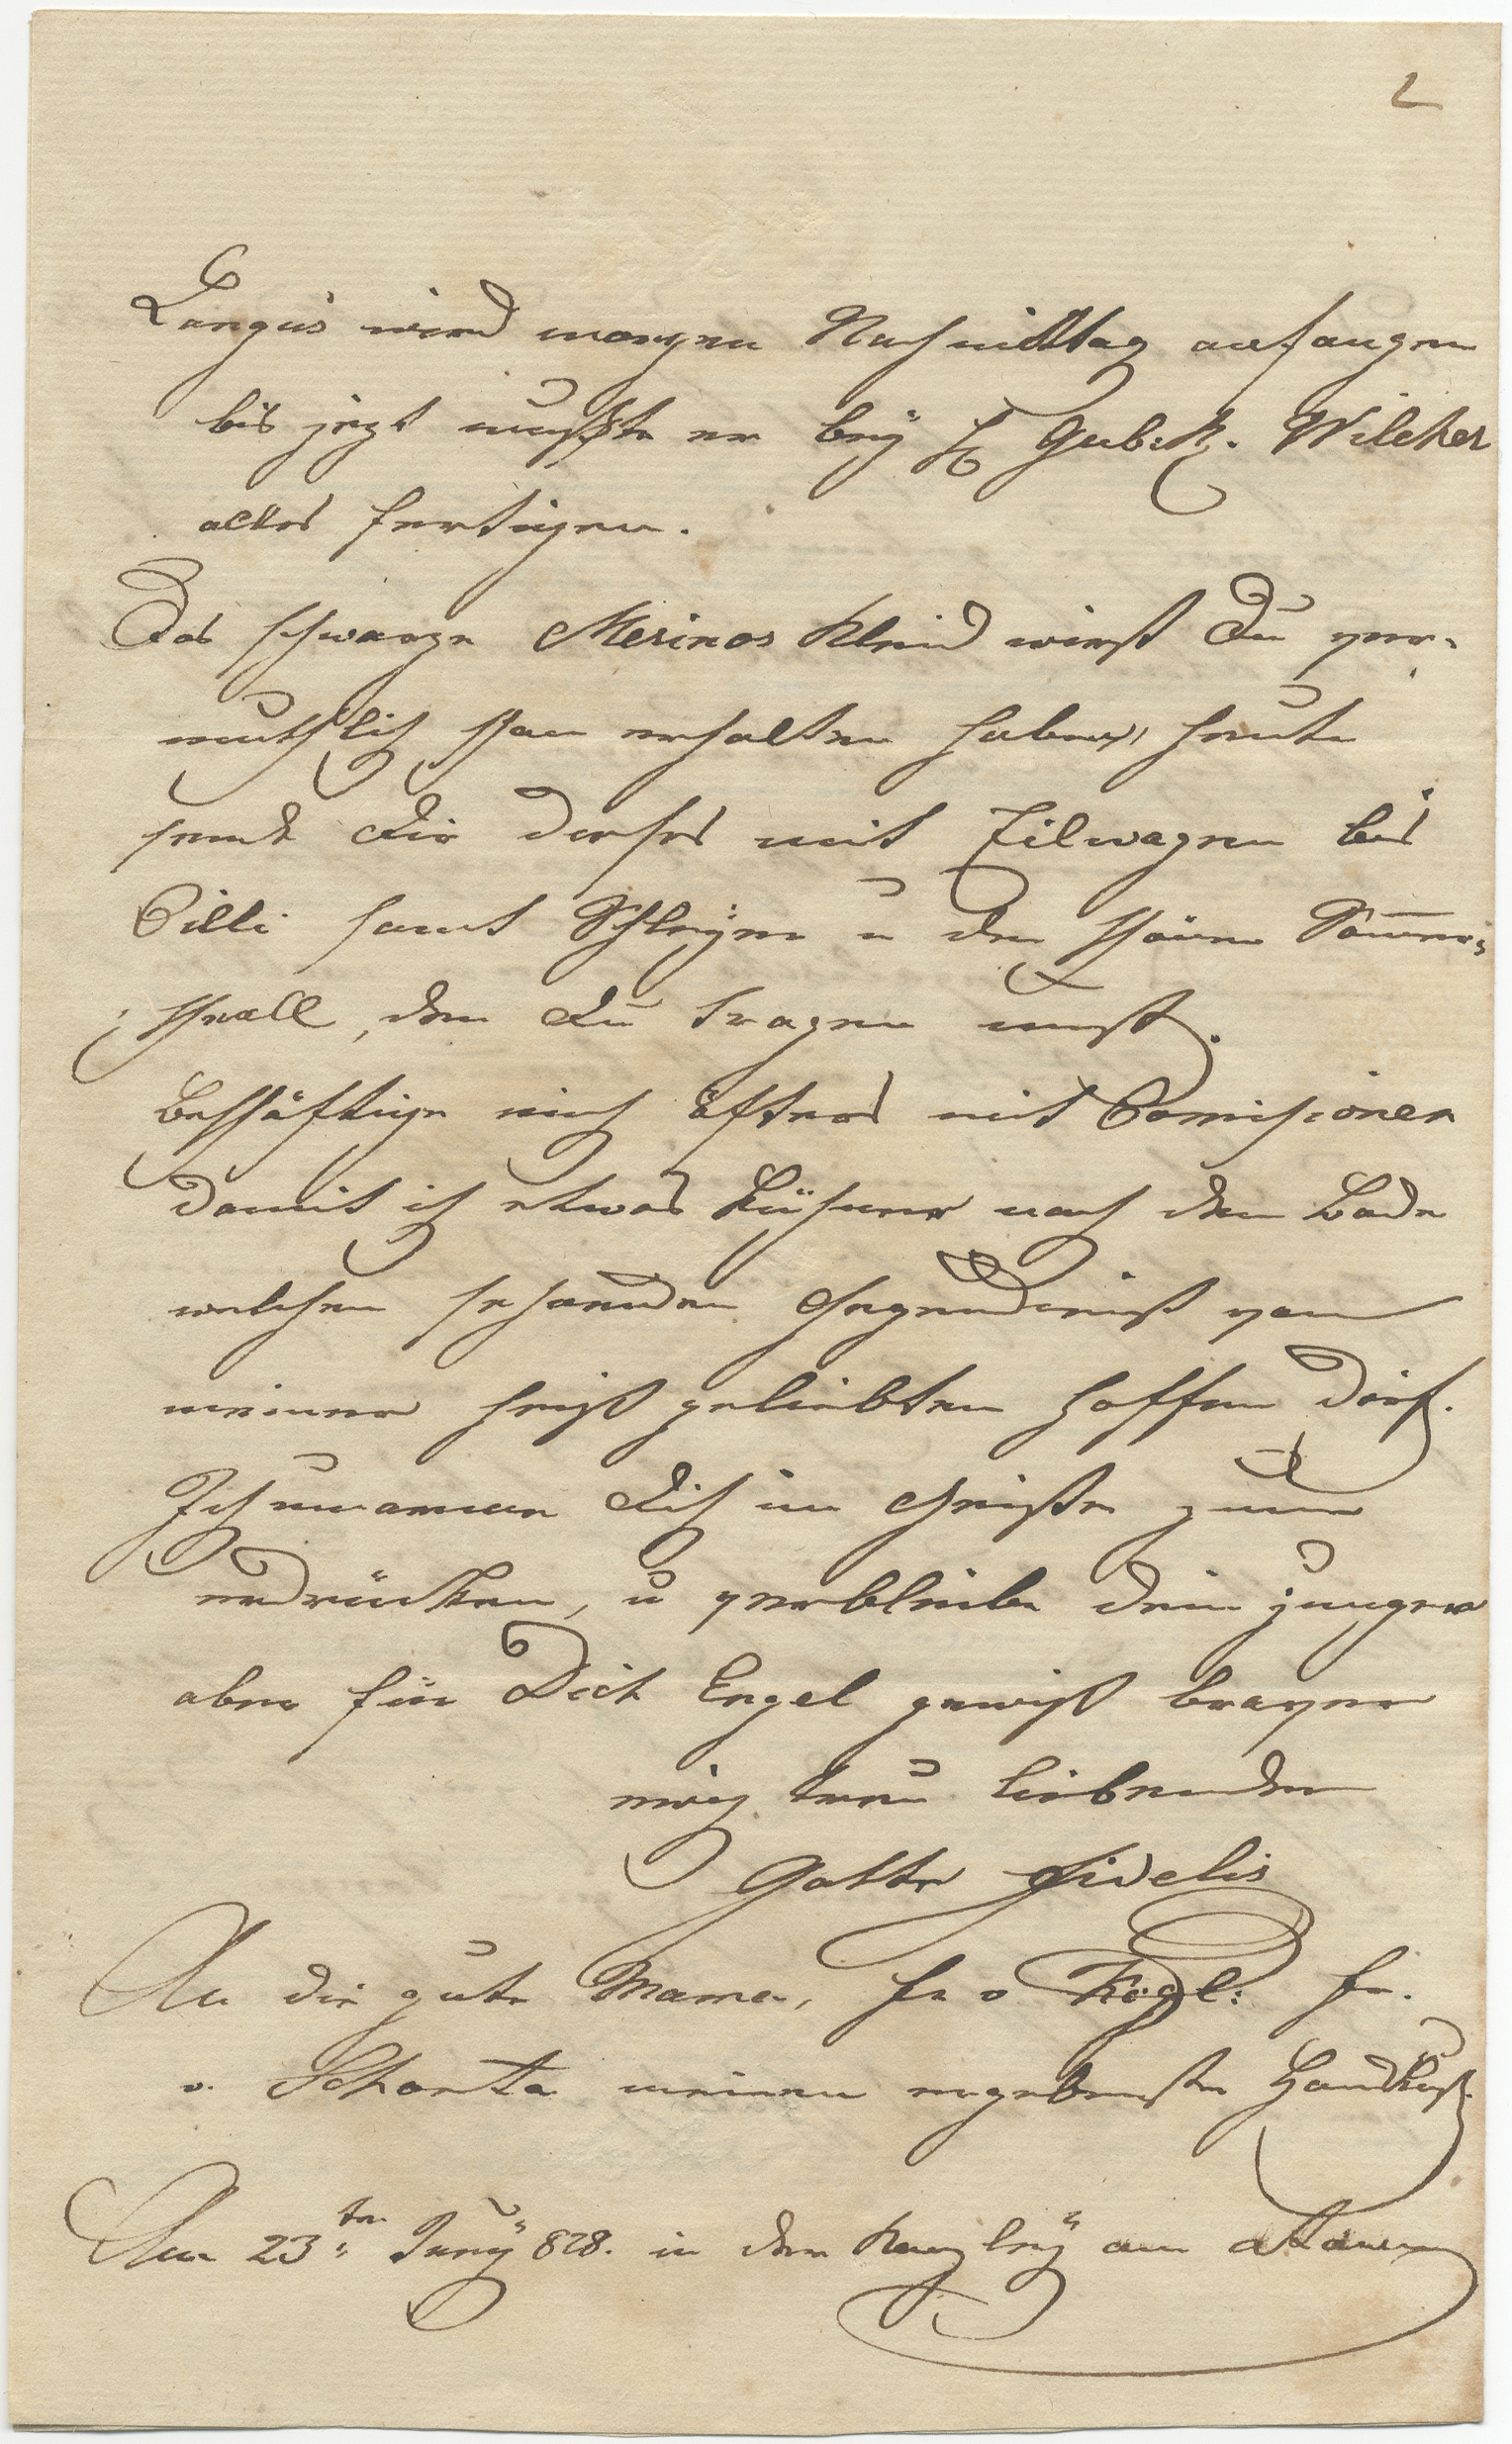 2
Langus wird morgen Nachmittag anfangen
bis jezt mußte er bey H Gub: R. Wilcher
alles fertigen.
Das schwarze Merinos Kleid wirst Du ver-
muthlich schon erhalten haben, heute
send Dir dieses mit Eilwagen bis
Cilli samt Schleyer u den schönen Somer-
shall, den Du tragen must.
Beschäftige mich öfters mit Comissionen
damit ich etwas kühner nach dem Bade
welchen
meiner heiß geliebten hoffen dörf.
Ich umarme Dich im Geiste zum
erdrücken, u verbleibe dein junger
aber für Dich Engel gewiß braver
ewig treu liebender
Gatte Fidelis
An die gute Mama, Fr v Kogl: Fr.
v. Schonta meinen ergebensten Handkuß.
Am 23:ten Juny 828. in der Kanzley am